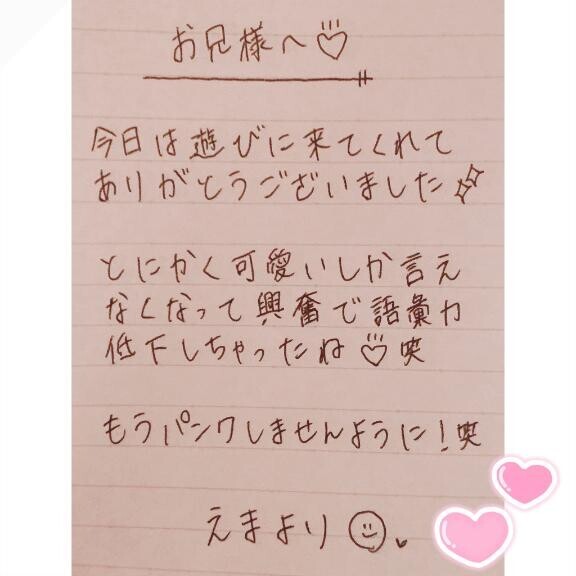 お兄様へ♡
今日は遊びに来てくれて
ありがとうございました✨
とにかく可愛いしか言え
なくなって興奮で語彙力
低下しちゃったね♡笑
もうパンクしませんように!笑
えまより☺♥